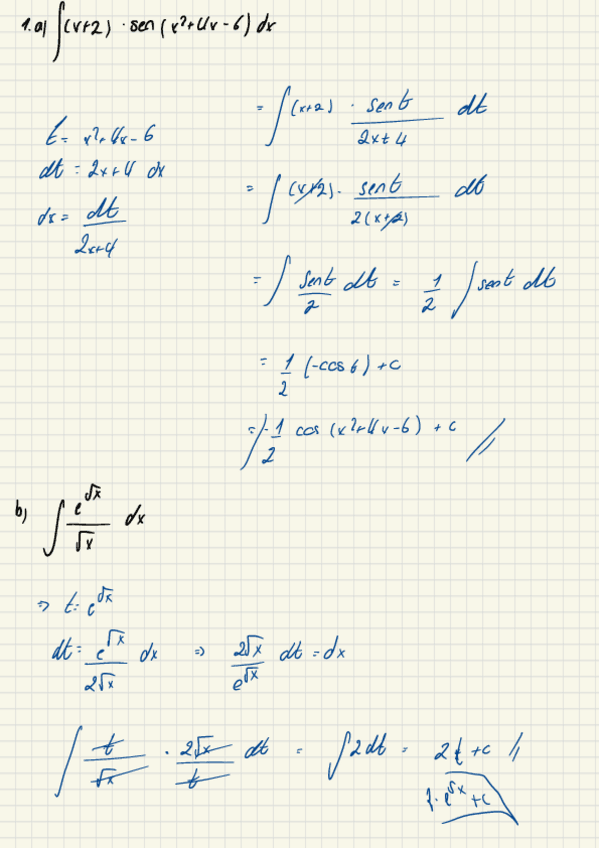 1. a) ∫(x+2) · sen(x²+4x-6) dx
t = x²+4x-6
dt = 2x+4 dx
dx = dt/(2x+4)
= ∫(x+2) · sen t/(2x+4) dt
= ∫(x+2) · sen t/(2(x+2)) dt
= ∫ sen t/2 dt = 1/2 ∫ sen t dt
= 1/2 (-cos t) + c
= -1/2 cos (x²+4x-6) + c //
b) ∫ e^√x/√x dx
⇒ t = e^√x
dt = e^√x/(2√x) dx ⇒ 2√x/e^√x dt = dx
∫ t/√x · 2√x/t dt = ∫2dt = 2t + c //
2·e^√x + c